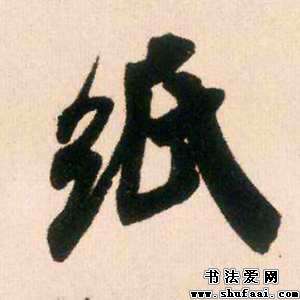 紙
书法爱网
www.shufaai.com